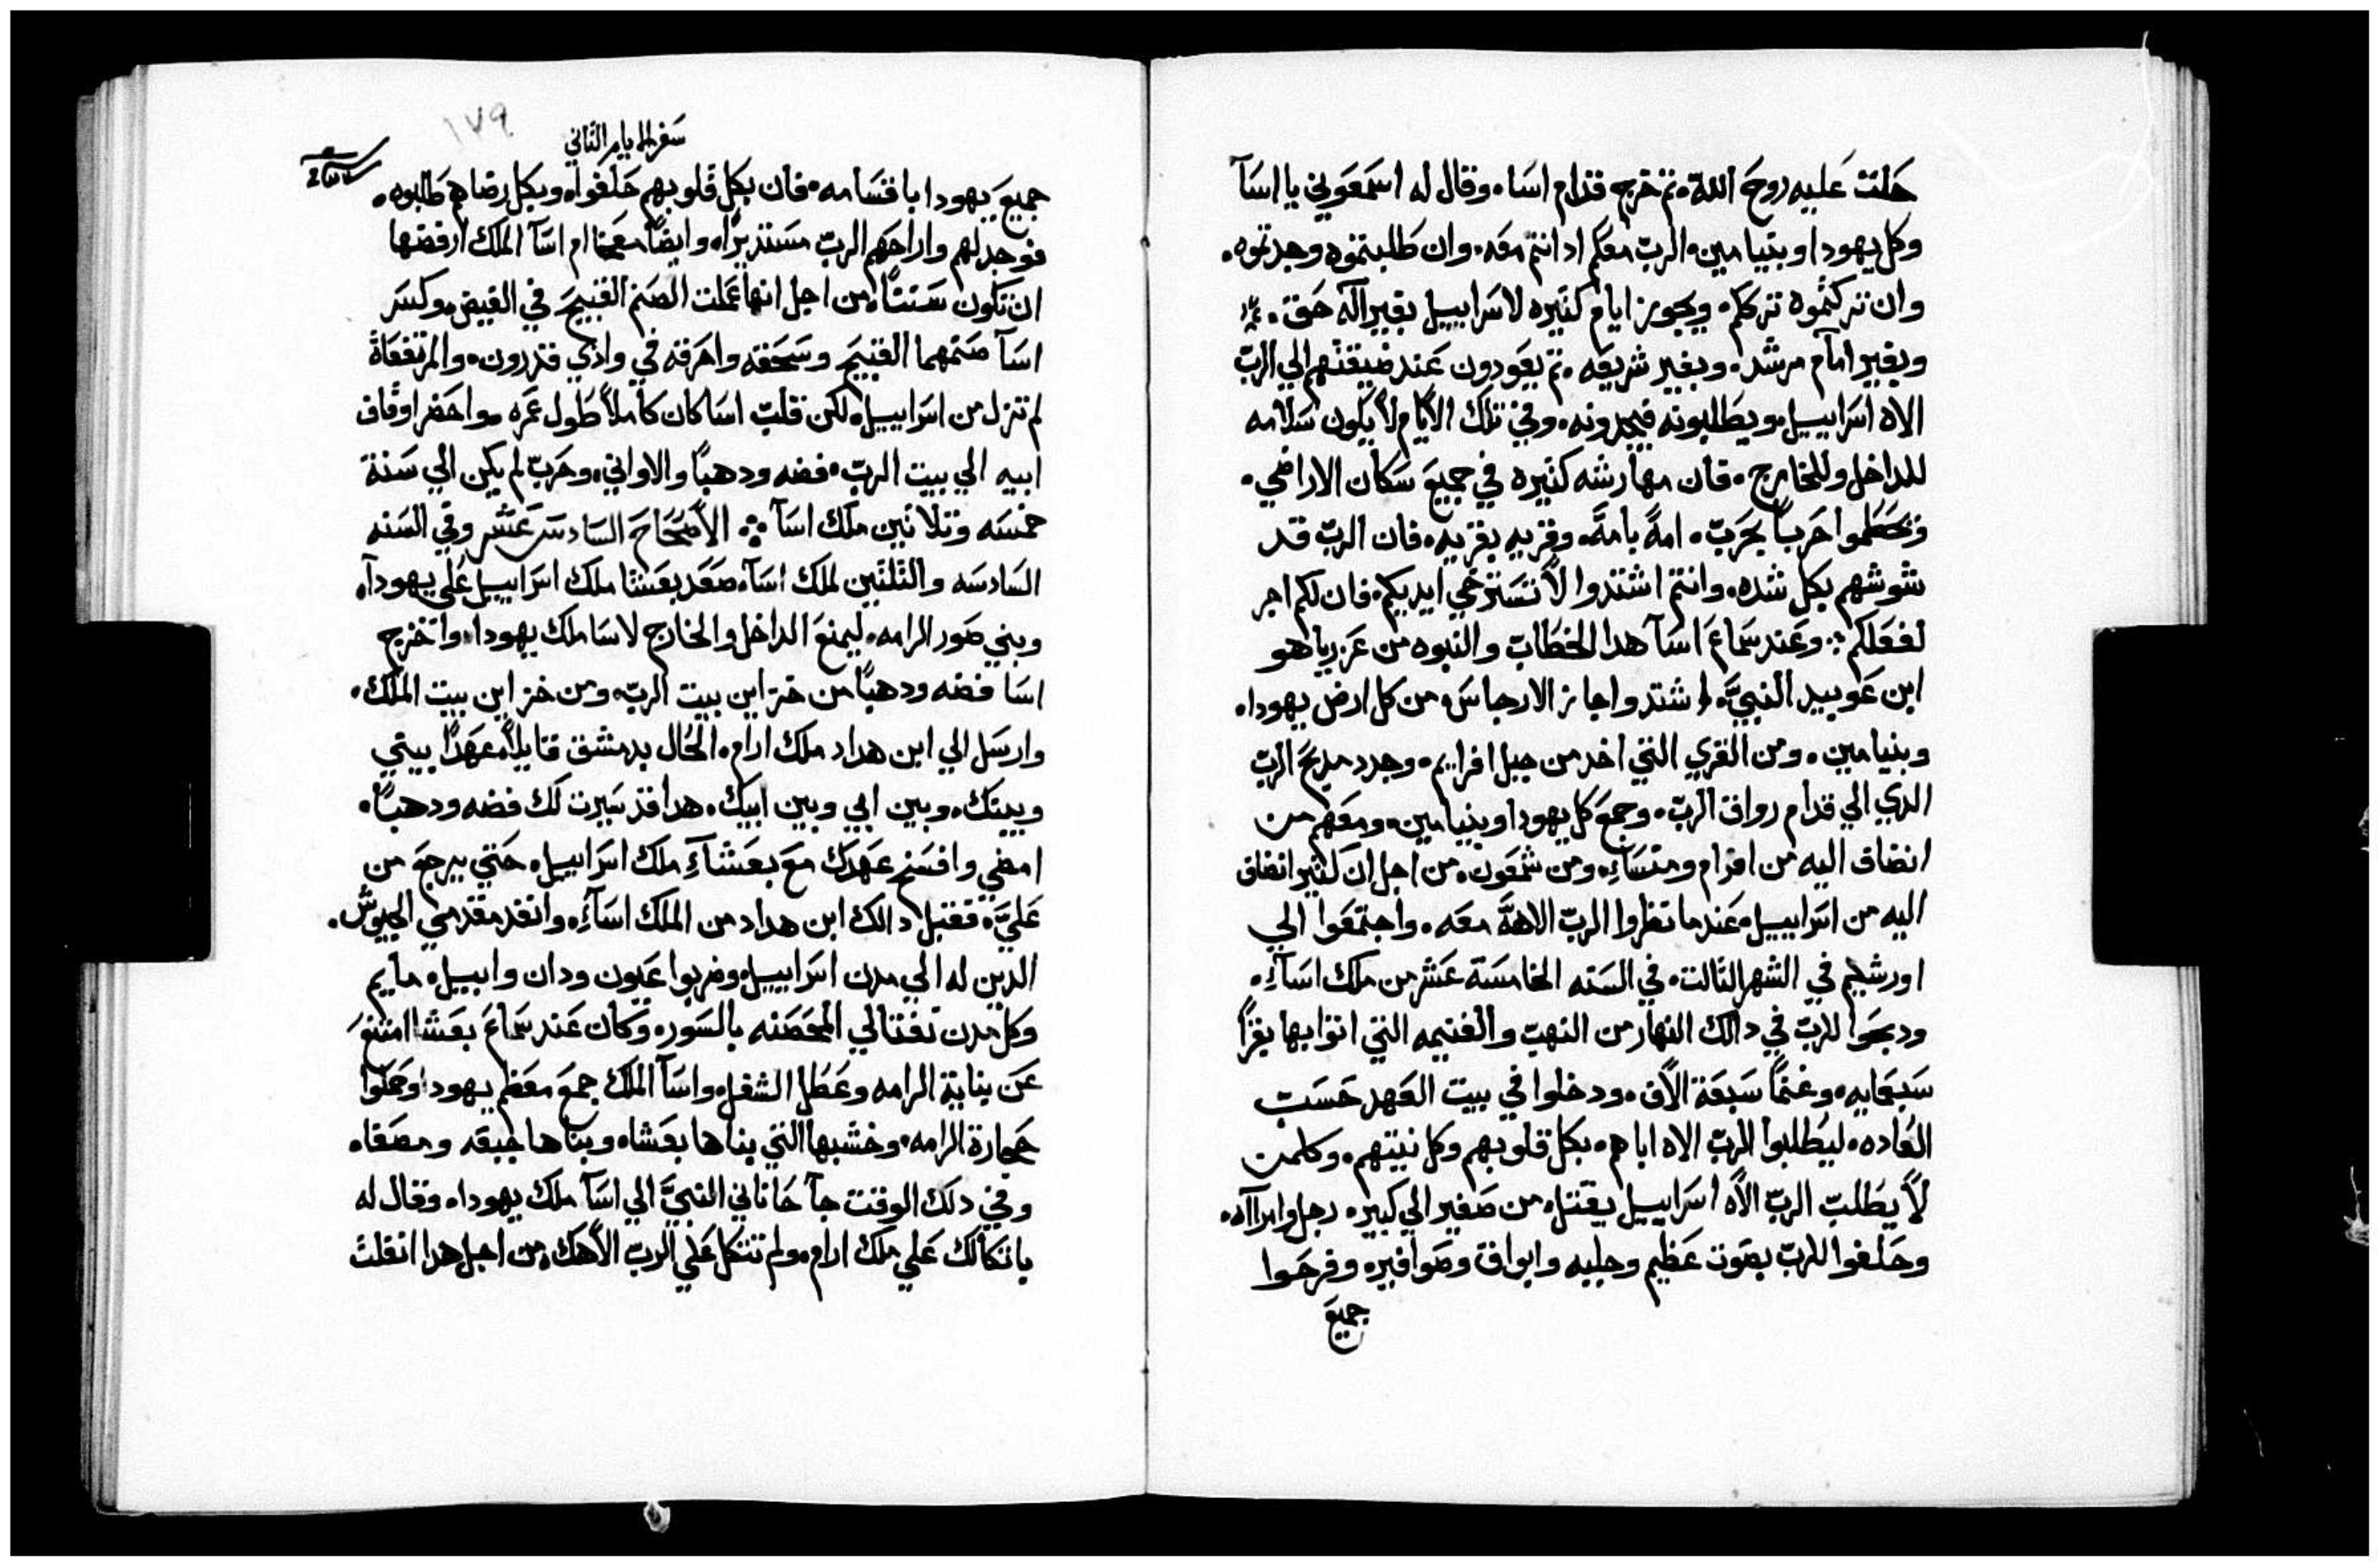 حلت عليه روح الله. ثم خرج قدام اسا. وقال له اسمعوني يا اسآ
وكل يهودا وبنيامين. الرب معكم اد انتم معه. وان طلبتموه وجدتوه.
وان تركتموه ترككم. ويجوز ايام كثيره لاسراييل بغير اله حق.
وبغير امام مرشد. وبغير شريعه. ثم يعودون عند ضيقتهم الي الرب
الاه اسراييل. ويطلبونه فيجدونه. وفي تلك الايام لا يكون سلامه
للداخل وللخارج. فان مهارشه كثيره في جميع سكان الاراضي.
وتحطموا حربا بحرب. امة بامة. وقريه بقريه. فان الرب قد
شوشهم بكل شده. وانتم اشتدوا لا تسترخي ايديكم. فان لكم اجر
لفعلكم: وعند سماع اسآ هدا الخطاب والنبوه من عزرياهو
ابن عوبيد النبي. اشتد واجاز الارجاس. من كل ارض يهودا.
وبنيامين. ومن القري التي اخد من جبل افرايم. وجدد مدبح الرب
الدي الي قدام رواق الرب. وجمع كل يهودا وبنيامين. ومعهم من
انضاف اليه من افرام ومنساء. ومن شمعون. من اجل ان كثير انضاف
اليه من اسراييل. عندما نظروا الرب الاهه معه. واجتمعوا الي
اورشليم في الشهر الثالث. في السنه الخامسة عشر من ملك اساء.
ودبحوا للرب في دالك النهار من النهب والغنيمه التي اتوا بها بقرا
سبعمايه. وغنما سبعة الاف. ودخلوا في بيت العهد حسب
العاده. ليطلبوا الرب الاه اباهم. بكل قلوبهم وكل نيتهم. وكلمن
لا يطلب الرب الاه اسراييل يقتل. من صغير الي كبير. رجل وامرااه.
وحلفوا للرب بصوت عظيم وجلبه وابواق وصوافير. وفرحوا
جميع
سفر الايام الثاني
١٧٩
جميع يهودا باقسامه. فان بكل قلوبهم حلفوا. وبكل رضاهم طلبوه.
فوجد لهم واراحهم الرب مستديرا. وايضا معخا ام اسآ الملك ارفضها
ان تكون ستتا. من اجل انها عملت الصنم القبيح في الغيض. وكسر
اسآ صنمهما القبيح وسحقه واحرقه في وادي قدرون. والمرتفعاة
لم تزل من اسراييل. ولكن قلب اسا كان كاملا طول عمره. واحضر اوقاف
ابيه الي بيت الرب. فضه ودهبا والاواني. وحرب لم يكن الي سنة
خمسه وتلاتين ملك اسآ ∴ الاصحاح السادس عشر وفي السنه
السادسه والثلثين لملك اسآ. صعد بعشا ملك اسراييل علي يهودآ.
وبني صور الرامه. ليمنع الداخل والخارج لاسا ملك يهودا. واخرج
اسا فضه ودهبا من خزاين بيت الرب. ومن خزاين بيت الملك.
وارسل الي ابن هداد ملك ارام. الحال بدمشق قايلا. عهدا بيتي
وبيتك. وبين ابي وبين ابيك. هدا قد سيرت لك فضه ودهبا.
امضي وافسخ عهدك مع بعشاء ملك اسراييل. حتي يرجع من
علي. فقبل دالك ابن هداد من الملك اساء. وانفد مقدمي الجيوش.
الدين له الي مدن اسراييل. وضربوا عيون ودان وابيل. مايم
وكل مدن نفتالي المحصنه بالسور. وكان عند سماع بعشا امتنع
عن بناية الرامه وعطل الشغل. واسآ الملك جمع معظم يهودا وحملوا
حجارة الرامه. وخشبها التي بناها بعشا. وبناها جبعه ومصفا.
وفي دلك الوقت جآ حاناني النبي الي اسآ ملك يهودا. وقال له
باتكالك علي ملك ارام. ولم تتكل علي الرب الاهك. من اجل هدا انفلت